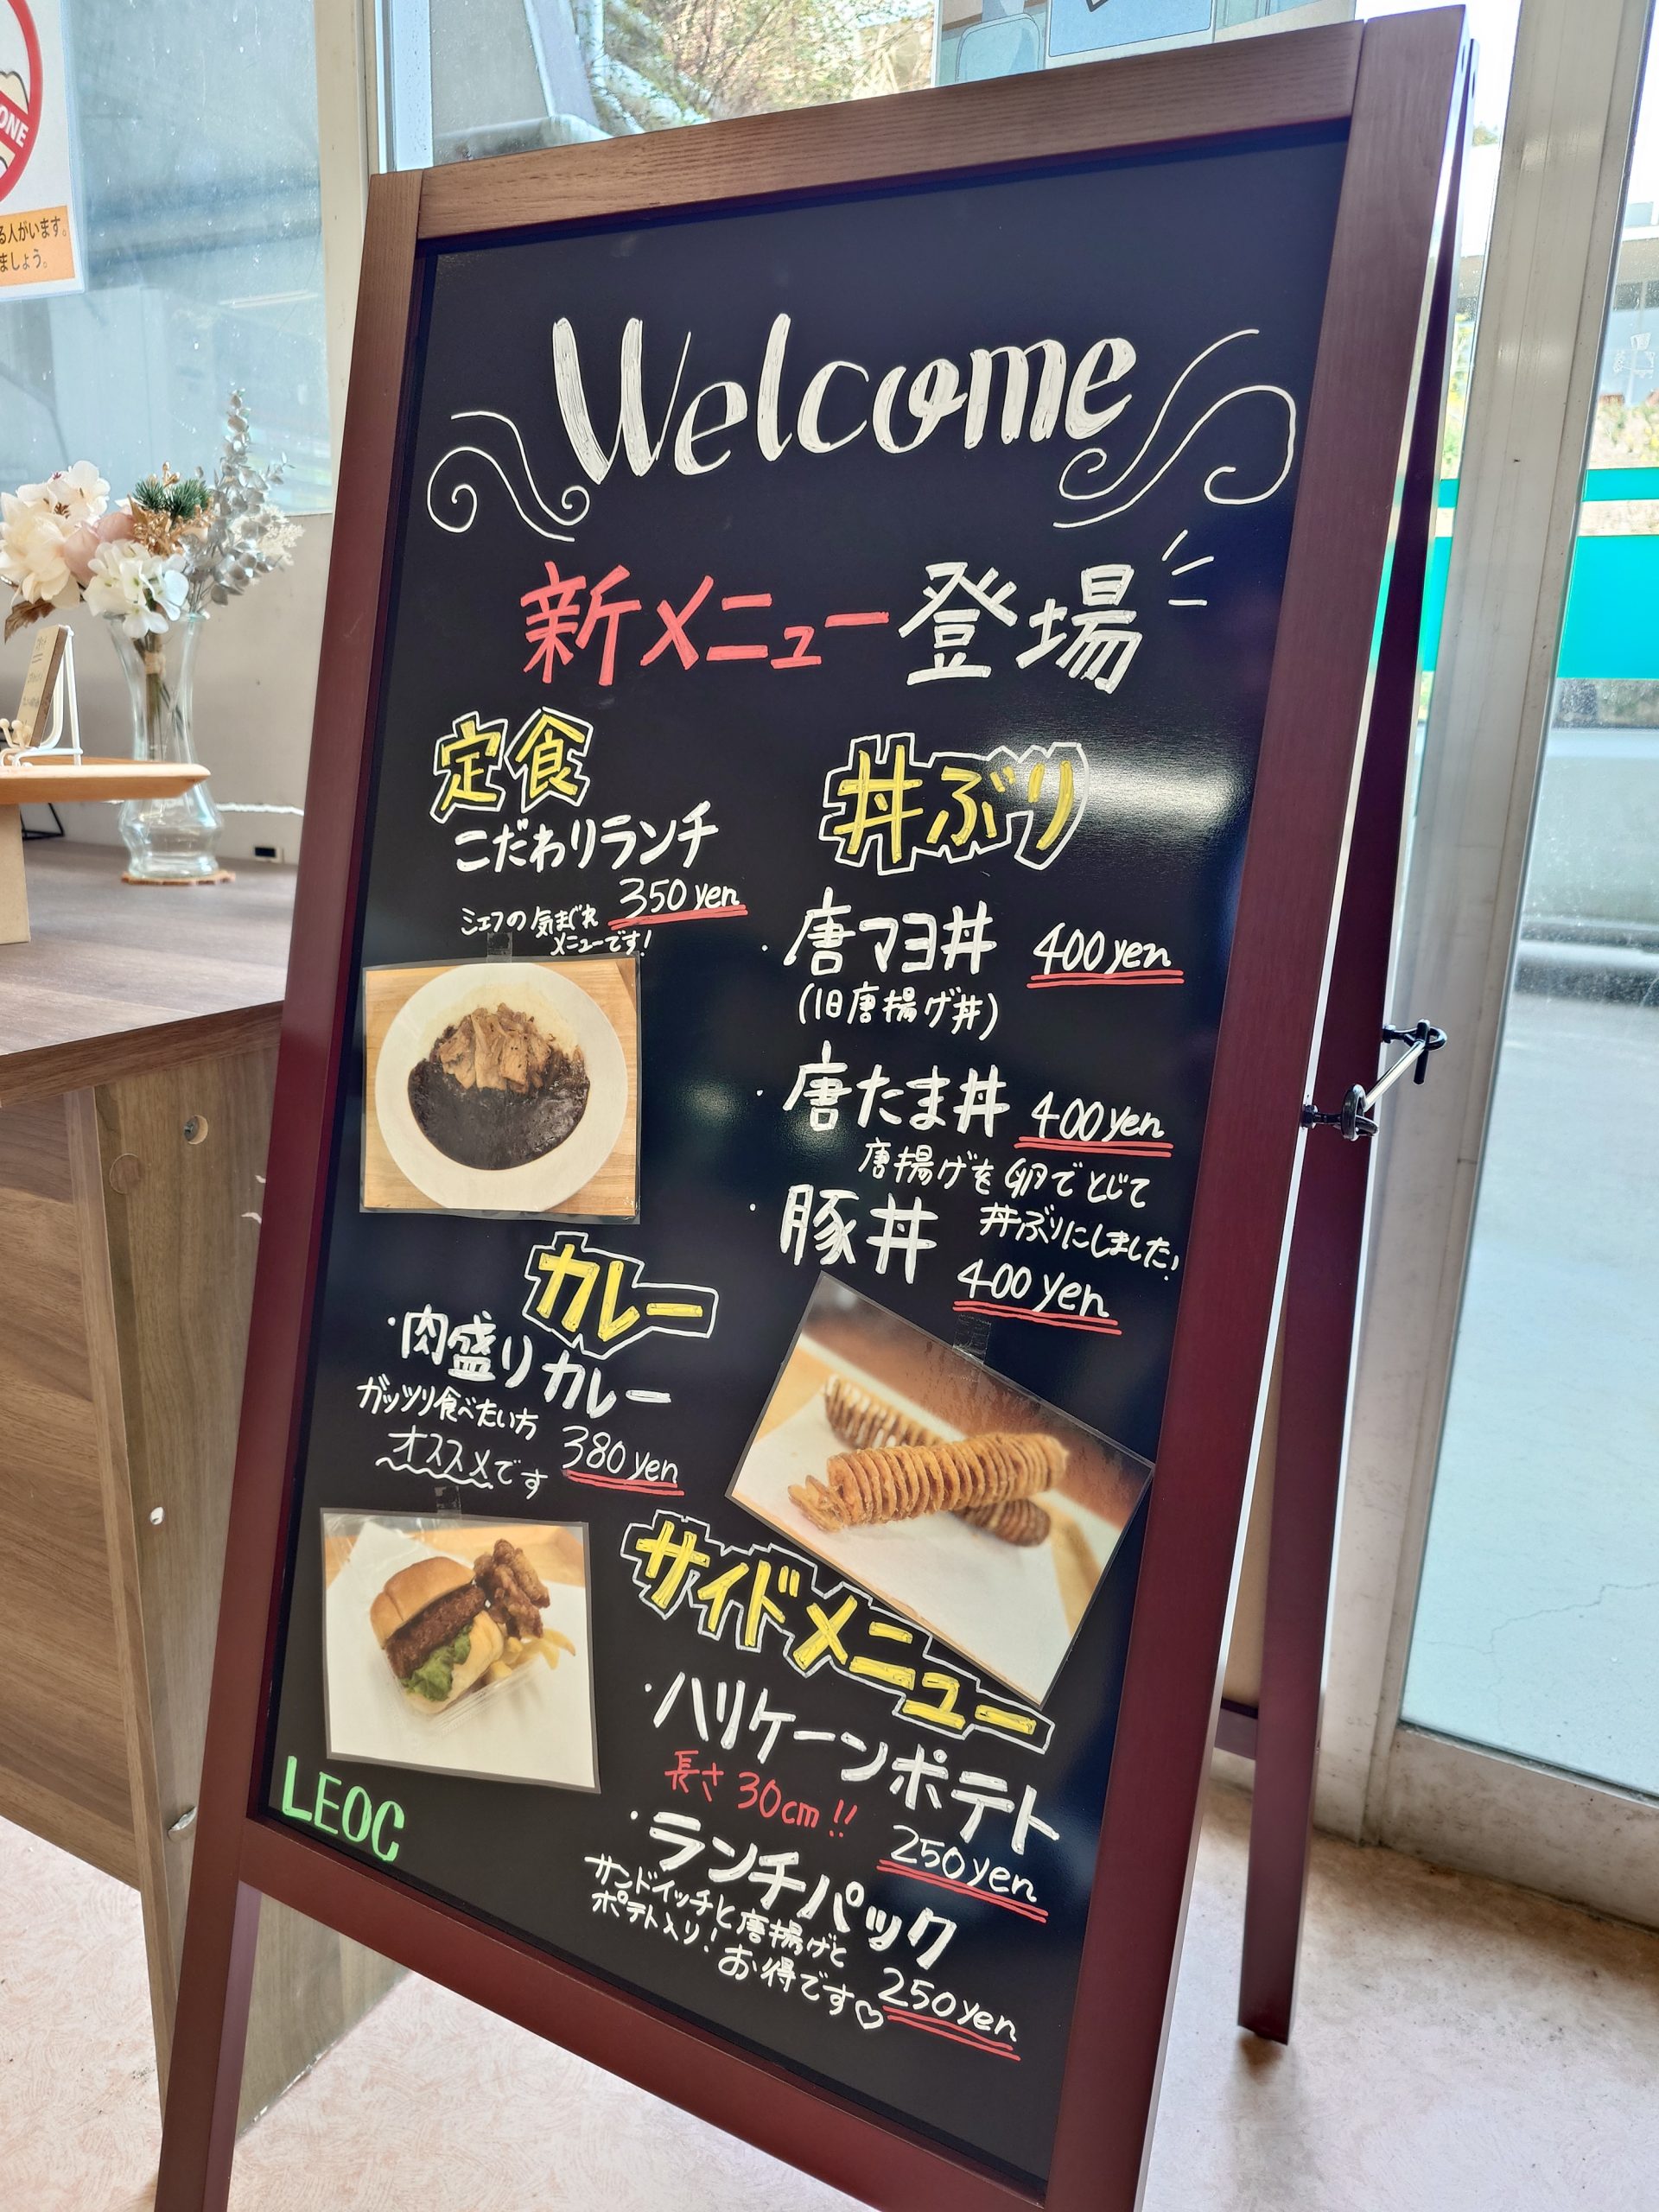 ONE
る人がいます。
ましょう。
Welcome
新メニュー登場
定食
こだわりランチ
350yen
シェフの気まぐれ
メニューです!
カレー
・肉盛りカレー
ガッツリ食べたい方
オススメです
380yen
丼ぶり
・唐マヨ丼 400yen
(旧唐揚げ丼)
・唐たま丼 400yen
唐揚げを卵でとじて
丼ぶりにしました!
・豚丼
400yen
サイドメニュー
・ハリケーンポテト
長さ30cm!!
250yen
・ランチパック
サンドイッチと唐揚げと
ポテト入り!お得です♡
250yen
LEOC